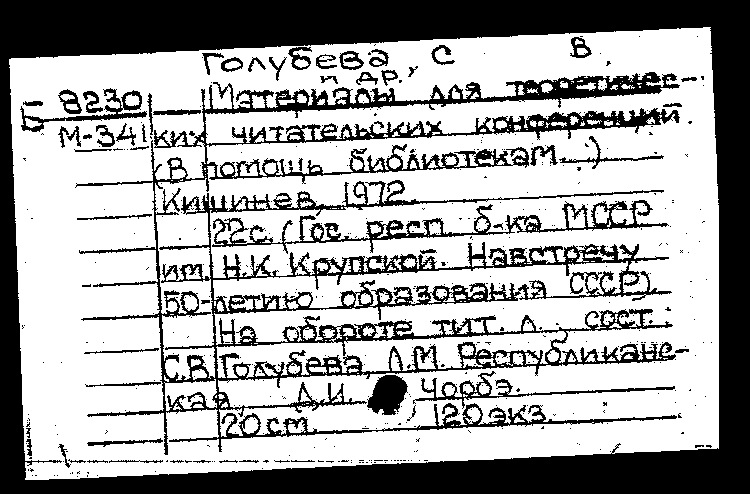 Голубева, С В.
и др.,
Б 8230 Материалы для теоретичес-
М-341 ких читательских конференций.
(В помощь библиотекам.)
Кишинев, 1972.
22с. (Гос. респ. б-ка МССР
им. Н.К. Крупской. Навстречу
50-летию образования СССР).
На обороте тит. л., сост.:
С.В. Голубева, Л.М. Республиканс-
кая, Д.И. Чорбэ.
20 ст. 120 экз.